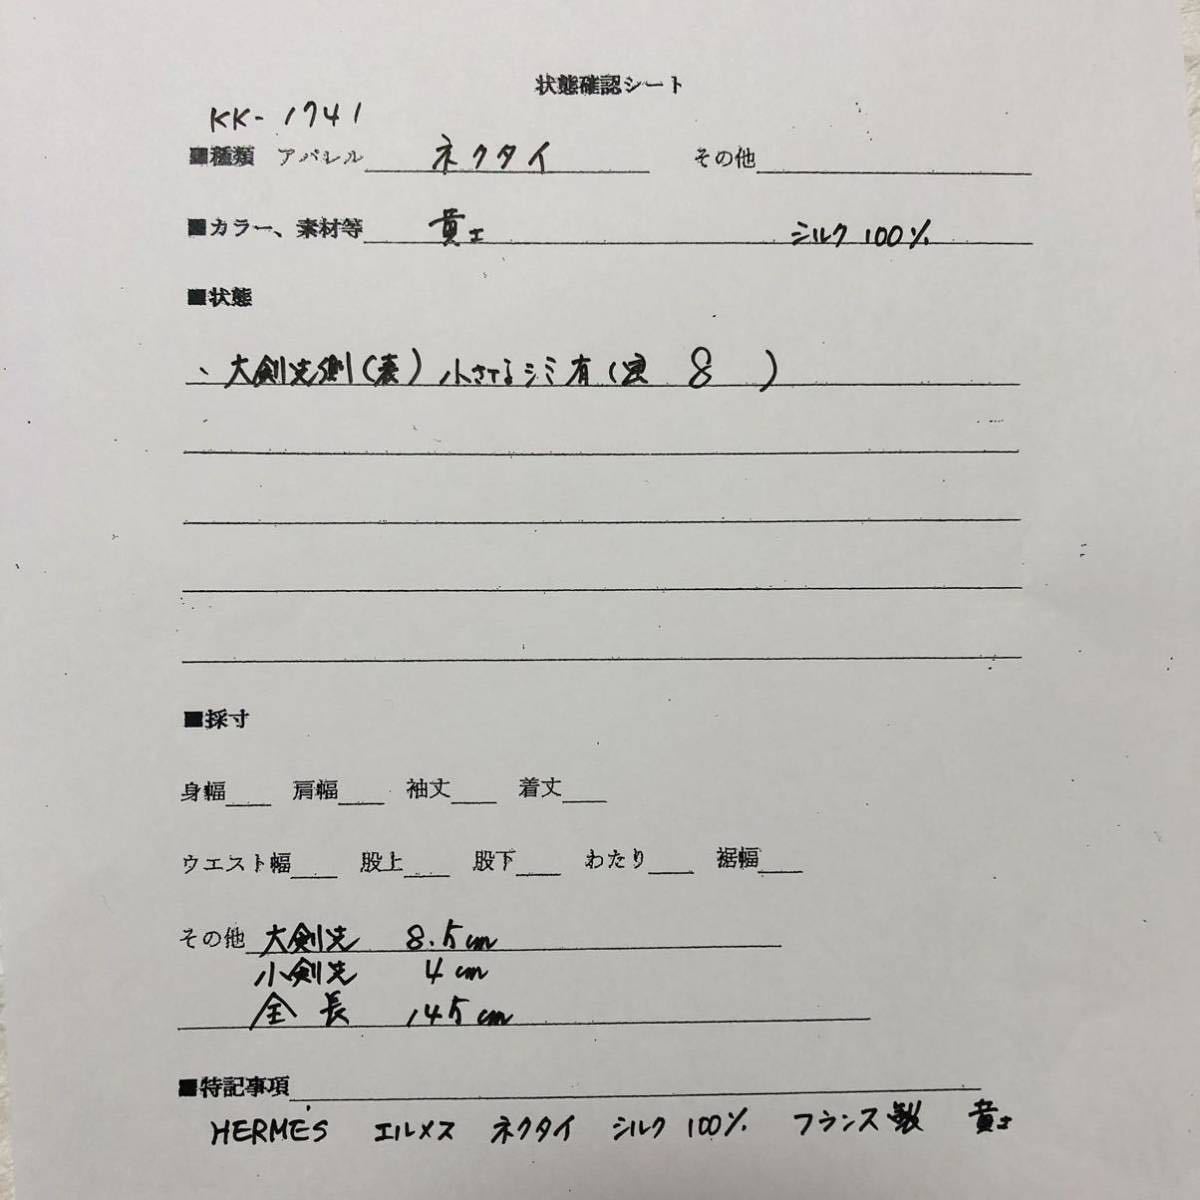 状態確認シート
KK-1741
■種類 アパレル ネクタイ その他
■カラー、素材等 黄土 シルク100%
■状態
、大剣先側(表)小さなシミ有( 8 )
■採寸
身幅 肩幅 袖丈 着丈
ウエスト幅 股上 股下 わたり 裾幅
その他 大剣先 8.5cm
小剣先 4cm
全長 145cm
■特記事項
HERMÉS エルメス ネクタイ シルク100% フランス製 黄土